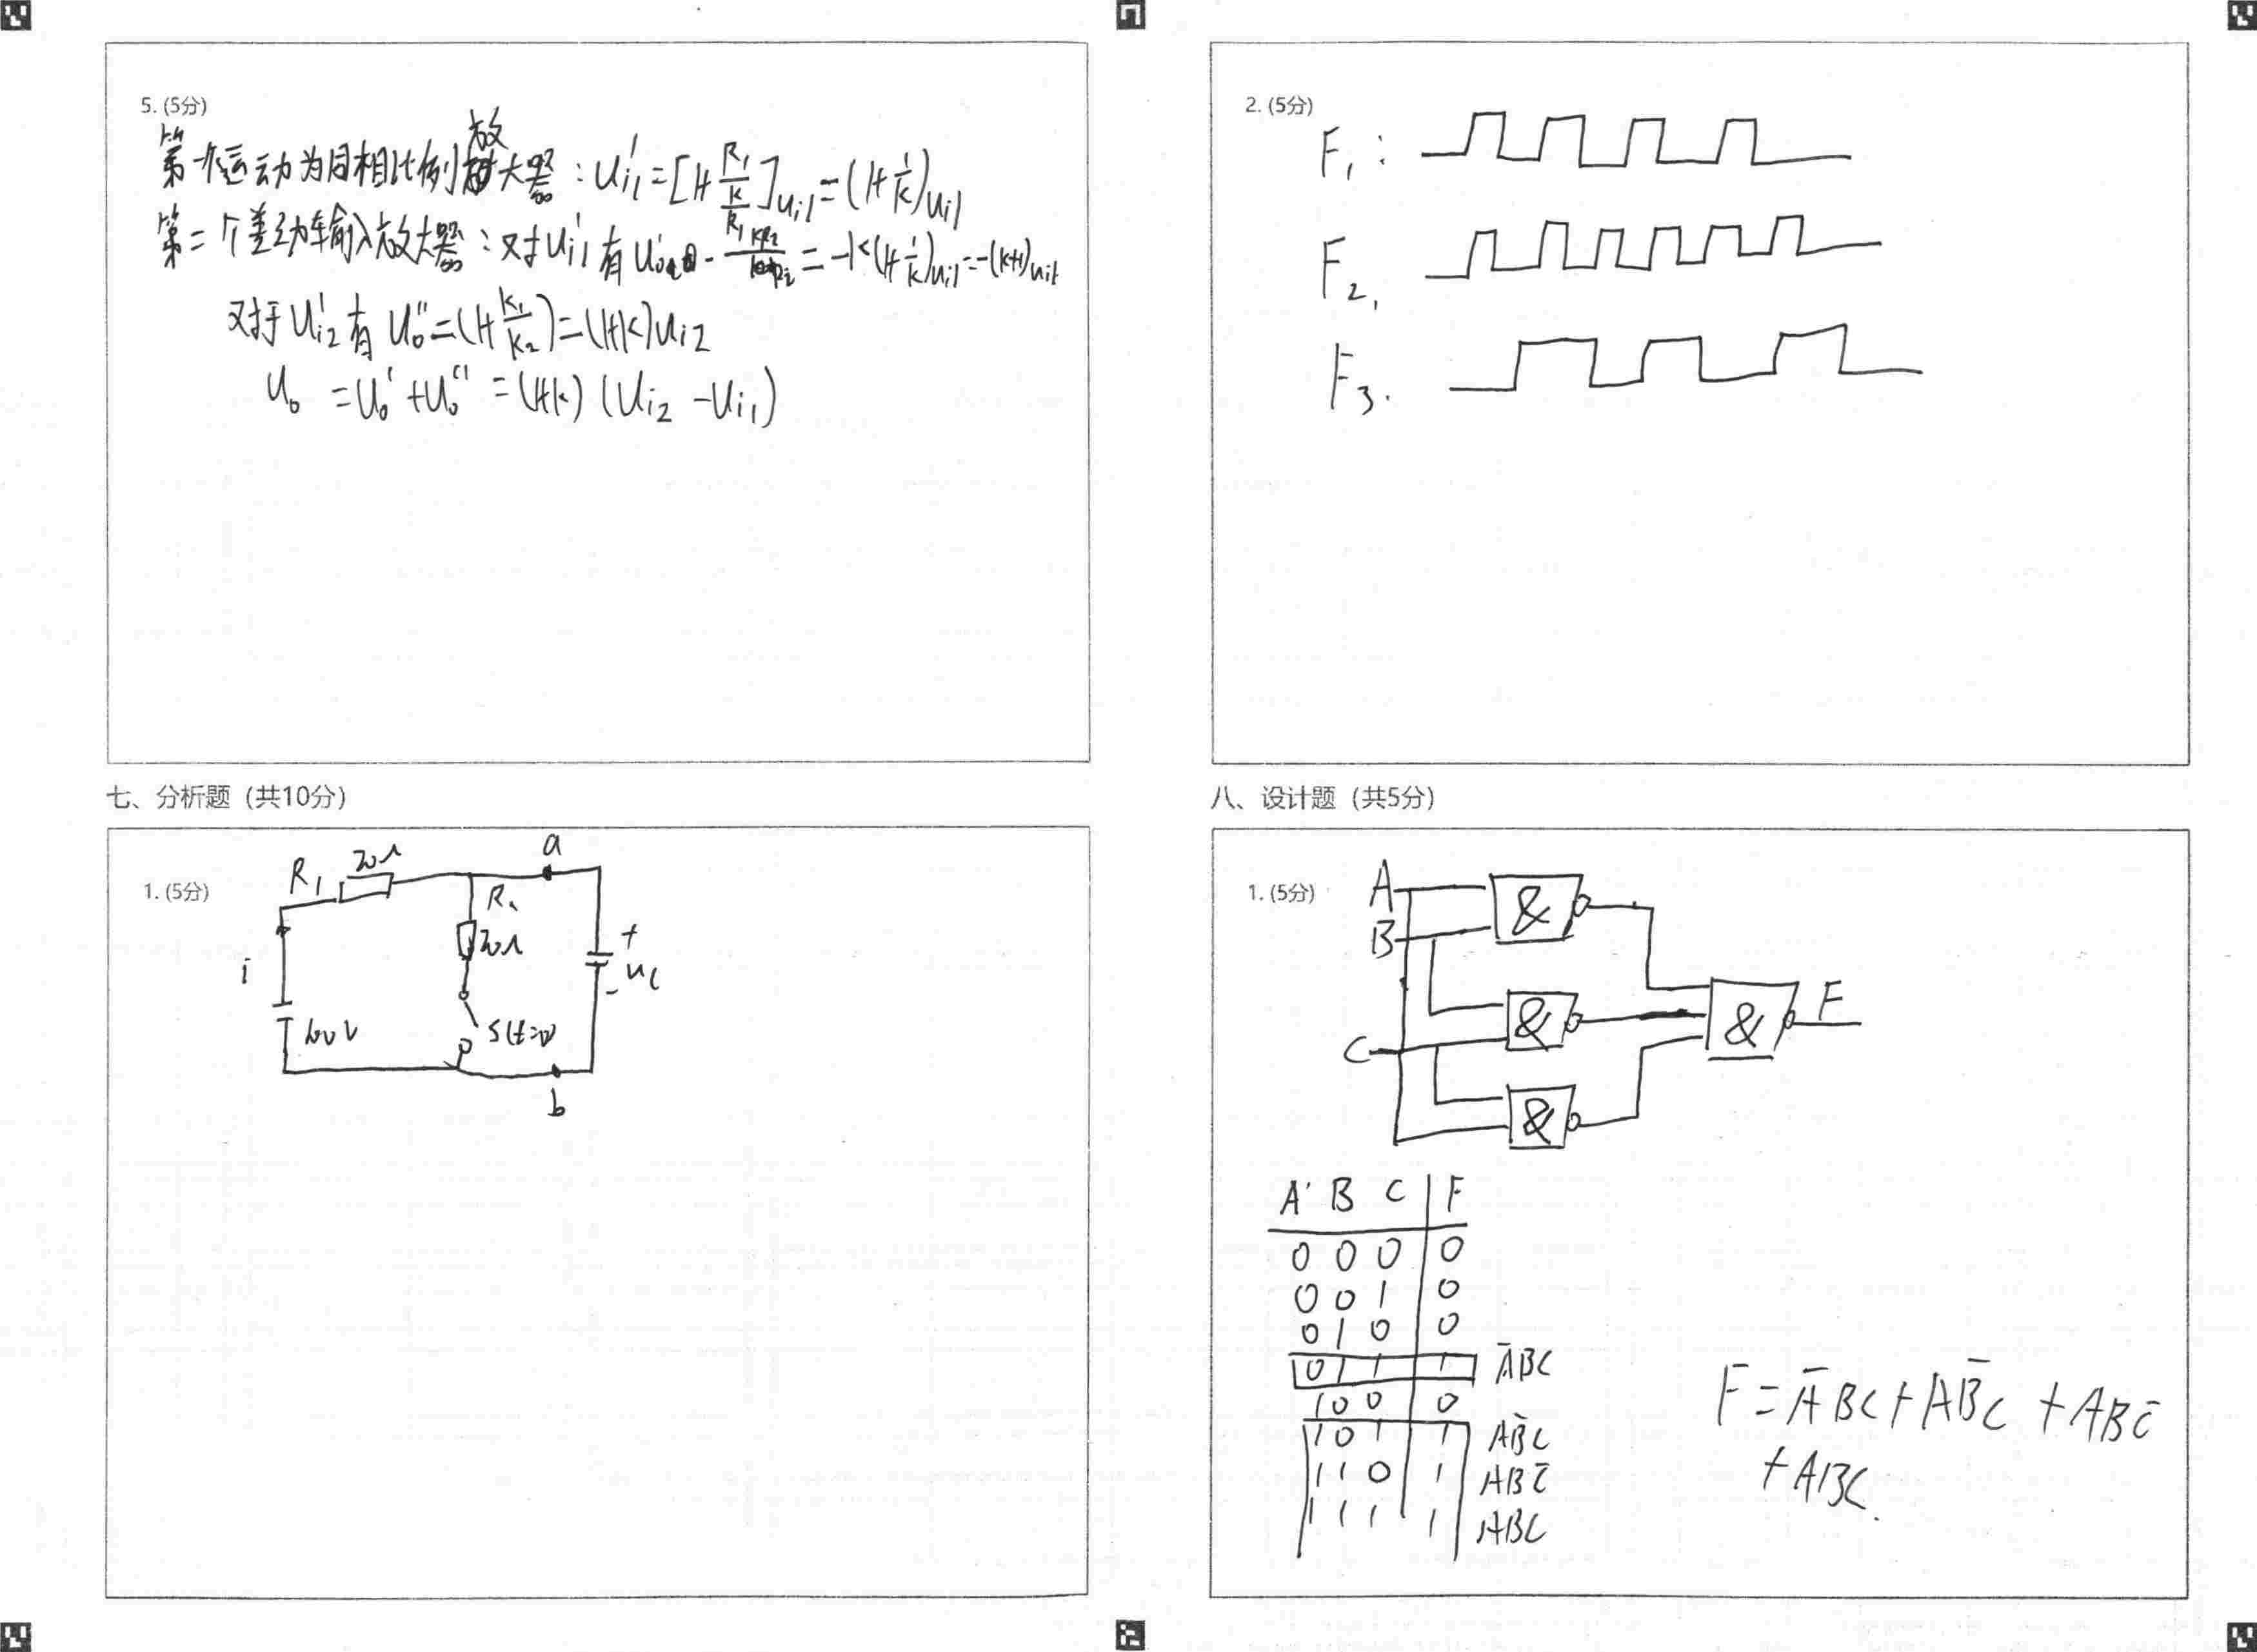 5. (5分)
第一个运动为同相比例放大器：Ui1' = [1+ R1/(R1/k)]ui1 = (1+ 1/k)ui1
第二个差动输入放大器：对Ui1'有 U0' = -k(1+ 1/k)ui1 = -(k+1)ui1
对于Ui2'有 U0'' = (1+ k1/k2) = (1+k)ui2
U0 = U0' + U0'' = (1+k) (Ui2 - Ui1)
七、分析题（共10分）
1. (5分)
R1 20Ω a
R2
20Ω
+
uC
-
i
100V
S(t=0)
b
2. (5分)
F1:
F2.
F3.
八、设计题（共5分）
1. (5分)
A &
B
C & & F
&
A B C F
0 0 0 0
0 0 1 0
0 1 0 0
0 1 1 1 A̅BC
1 0 0 0
1 0 1 1 AB̅C
1 1 0 1 ABC̅
1 1 1 1 ABC
F = A̅BC + AB̅C + ABC̅
+ ABC.